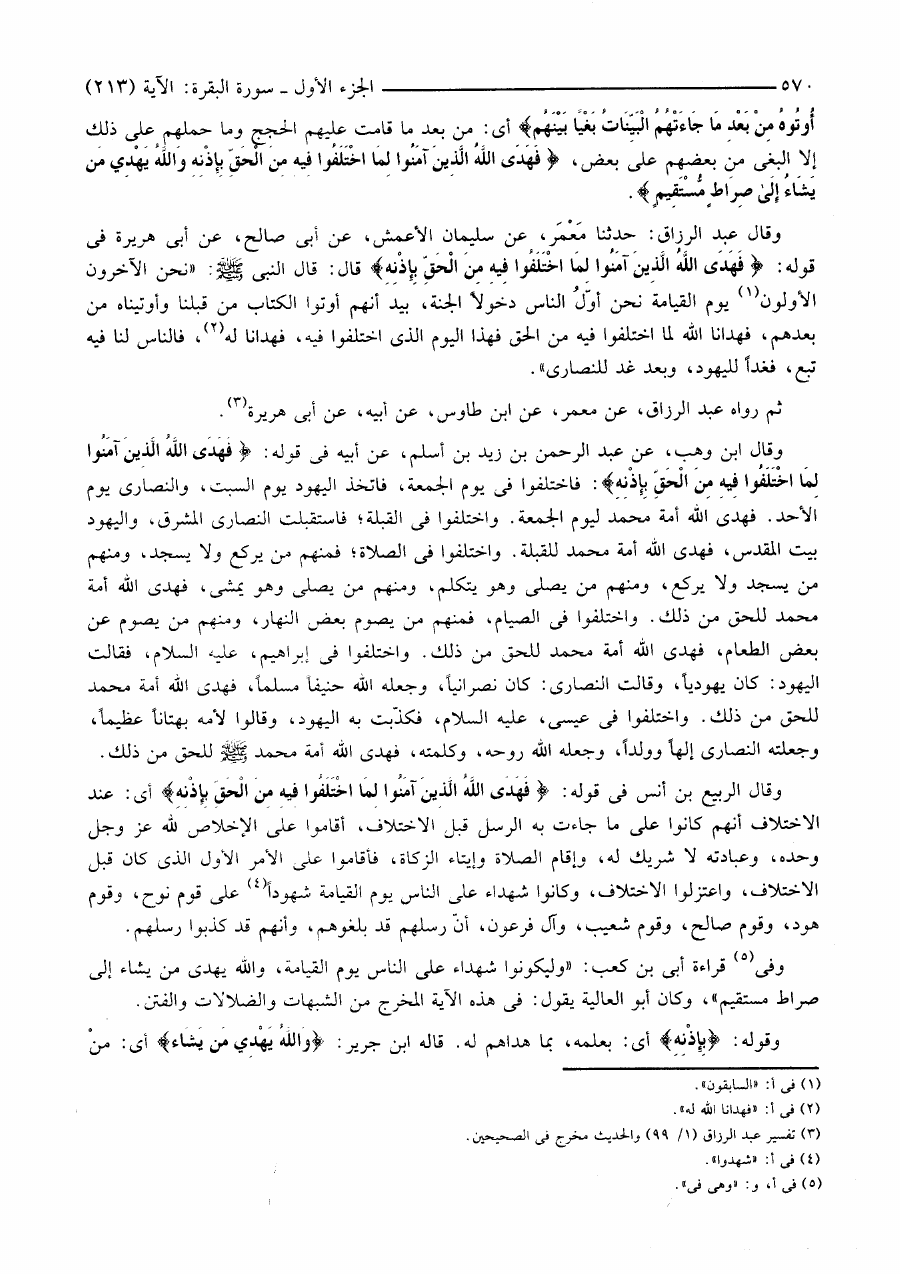 ٥٧٠ ــــــــــ الجزء الأول ـ سورة البقرة: الآية (٢١٣)
أُوتُوهُ مِنْ بَعْدِ مَا جَاءَتْهُمُ الْبَيِّنَاتُ بَغْيًا بَيْنَهُم﴾ أى: من بعد ما قامت عليهم الحجج وما حملهم على ذلك
إلا البغى من بعضهم على بعض، ﴿ فَهَدَى اللَّهُ الَّذِينَ آمَنُوا لِمَا اخْتَلَفُوا فِيهِ مِنَ الْحَقِّ بِإِذْنِهِ وَاللَّهُ يَهْدِي مَن
يَشَاءُ إِلَىٰ صِرَاطٍ مُّسْتَقِيمٍ ﴾.
وقال عبد الرزاق: حدثنا مَعْمَر، عن سليمان الأعمش، عن أبى صالح، عن أبى هريرة فى
قوله: ﴿ فَهَدَى اللَّهُ الَّذِينَ آمَنُوا لِمَا اخْتَلَفُوا فِيهِ مِنَ الْحَقِّ بِإِذْنِهِ﴾ قال: قال النبى ﷺ: «نحن الآخرون
الأولون(١) يوم القيامة نحن أوّلُ الناس دخولاً الجنة، بيد أنهم أوتوا الكتاب من قبلنا وأوتيناه من
بعدهم، فهدانا الله لما اختلفوا فيه من الحق فهذا اليوم الذى اختلفوا فيه، فهدانا له(٢)، فالناس لنا فيه
تبع، فغداً لليهود، وبعد غد للنصارى».
ثم رواه عبد الرزاق، عن معمر، عن ابن طاوس، عن أبيه، عن أبى هريرة(٣).
وقال ابن وهب، عن عبد الرحمن بن زيد بن أسلم، عن أبيه فى قوله: ﴿ فَهَدَى اللَّهُ الَّذِينَ آمَنُوا
لِمَا اخْتَلَفُوا فِيهِ مِنَ الْحَقِّ بِإِذْنِهِ﴾: فاختلفوا فى يوم الجمعة، فاتخذ اليهود يوم السبت، والنصارى يوم
الأحد. فهدى الله أمة محمد ليوم الجمعة. واختلفوا فى القبلة؛ فاستقبلت النصارى المشرق، واليهود
بيت المقدس، فهدى الله أمة محمد للقبلة. واختلفوا فى الصلاة؛ فمنهم من يركع ولا يسجد، ومنهم
من يسجد ولا يركع، ومنهم من يصلى وهو يتكلم، ومنهم من يصلى وهو يمشى، فهدى الله أمة
محمد للحق من ذلك. واختلفوا فى الصيام، فمنهم من يصوم بعض النهار، ومنهم من يصوم عن
بعض الطعام، فهدى الله أمة محمد للحق من ذلك. واختلفوا فى إبراهيم، عليه السلام، فقالت
اليهود: كان يهودياً، وقالت النصارى: كان نصرانياً، وجعله الله حنيفاً مسلماً، فهدى الله أمة محمد
للحق من ذلك. واختلفوا فى عيسى، عليه السلام، فكذّبت به اليهود، وقالوا لأمه بهتاناً عظيماً،
وجعلته النصارى إلهاً وولداً، وجعله الله روحه، وكلمته، فهدى الله أمة محمد ﷺ للحق من ذلك.
وقال الربيع بن أنس فى قوله: ﴿ فَهَدَى اللَّهُ الَّذِينَ آمَنُوا لِمَا اخْتَلَفُوا فِيهِ مِنَ الْحَقِّ بِإِذْنِهِ﴾ أى: عند
الاختلاف أنهم كانوا على ما جاءت به الرسل قبل الاختلاف، أقاموا على الإخلاص لله عز وجل
وحده، وعبادته لا شريك له، وإقام الصلاة وإيتاء الزكاة، فأقاموا على الأمر الأول الذى كان قبل
الاختلاف، واعتزلوا الاختلاف، وكانوا شهداء على الناس يوم القيامة شهوداً(٤) على قوم نوح، وقوم
هود، وقوم صالح، وقوم شعيب، وآل فرعون، أنّ رسلهم قد بلغوهم، وأنهم قد كذبوا رسلهم.
وفى(٥) قراءة أبى بن كعب: «وليكونوا شهداء على الناس يوم القيامة، والله يهدى من يشاء إلى
صراط مستقيم»، وكان أبو العالية يقول: فى هذه الآية المخرج من الشبهات والضلالات والفتن.
وقوله: ﴿بِإِذْنِهِ﴾ أى: بعلمه، بما هداهم له. قاله ابن جرير: ﴿وَاللَّهُ يَهْدِي مَن يَشَاء﴾ أى: منْ
(١) فى أ: «السابقون».
(٢) فى أ: «فهدانا الله له».
(٣) تفسير عبد الرزاق (١/ ٩٩) والحديث مخرج فى الصحيحين.
(٤) فى أ: «شهدوا».
(٥) فى أ، و: «وهى فى».